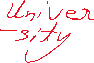 Univer
-sity